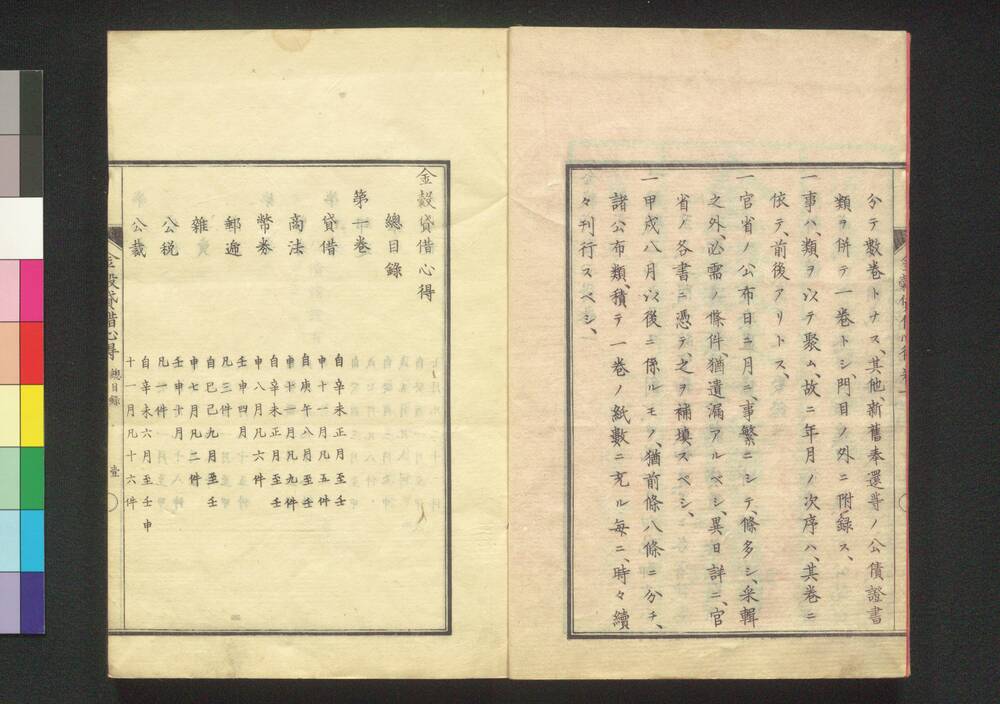 分テ數卷トナス、其他、新舊奉還等ノ公債證書
類ヲ併テ一卷トシ、門目ノ外ニ附録ス、
一事ハ、類ヲ以テ聚ム、故ニ年月ノ次序ハ、其卷ニ
依テ、前後アリトス、
一官省ノ公布日ニ月ニ、事繁ニシテ、條多シ、采輯
之外、必需ノ條件、猶遺漏アルベシ、異日詳ニ、官
省ノ各書ニ憑テ、之ヲ補填スベシ、
一甲戌八月以後ニ係ルモノ、猶前條八條ニ分チ、
諸公布類、積テ一卷ノ紙數ニ充ル每ニ、時々續
々刊行スベシ、
金穀貸借心得
總目錄
第一卷
貸借
自辛未正月至壬
申十一月凡五件
商法
自庚午八月至壬
申十一月凡九件
幣券
自辛未正月至壬
申八月凡六件
郵遞
壬申四月
凡三件
雜
自己巳九月至壬
申七月凡二件
公税
壬申十月
凡一件
公裁
自辛未六月至壬申
十一月凡十六件
金穀貸借心得
總目錄
壹